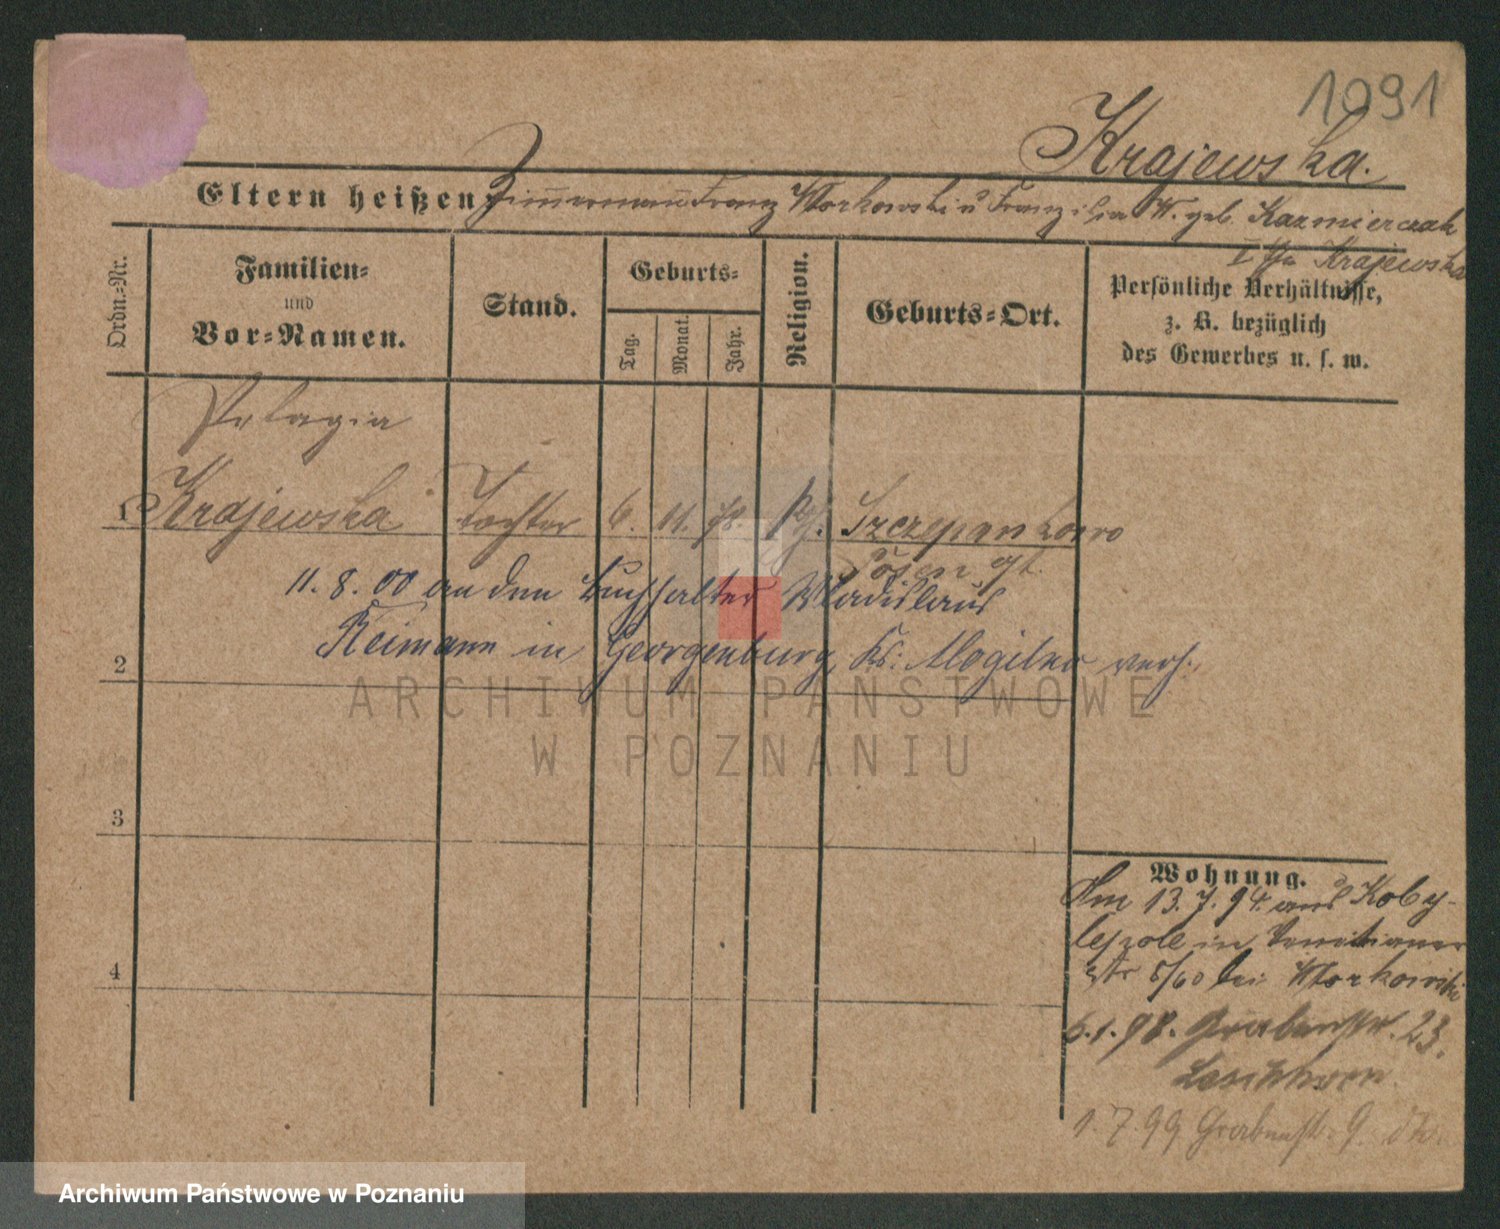 1091
Krajewska.
Eltern heißen Zimmermann Franz Workowski u Franziska W. geb. Kazmierczak
I Ehe Krajewska
Ordn.=Nr.
Familien=
und
Vor=Namen.
Stand.
Geburts=
Tag.
Monat.
Jahr.
Religion.
Geburts=Ort.
Persönliche Verhältnisse,
z. B. bezüglich
des Gewerbes u. s. w.
Pelagia
1 Krajewska Tochter 6. 11. 78. Szczepankowo
Posen
11. 8. 00 an den Buchhalter Wladislaus
Reimann in Georgenburg, Kr. Mogilno verh.
2
3
4
Wohnung.
Am 13. 7. 94. aus Koby-
lepole in Venetianer
str 5/60 bei Workowski
6. 1. 98. Grabenstr. 23.
1. 7. 99 Grabenstr. 9.
ARCHIWUM PAŃSTWOWE
W POZNANIU
Archiwum Państwowe w Poznaniu